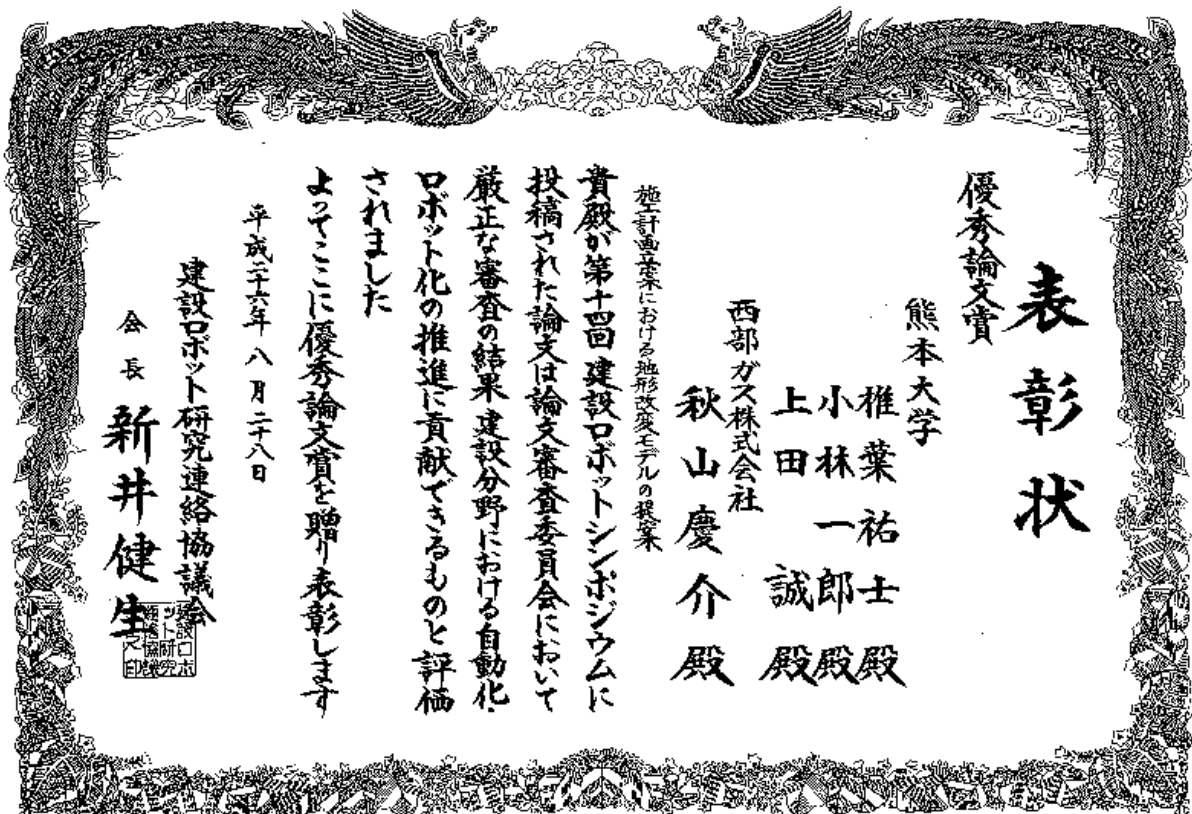 表彰状
優秀論文賞
熊本大学
椎葉祐士殿
小林一郎殿
上田 誠殿
西部ガス株式会社
秋山慶介殿
施工計画立案における地形改変モデルの提案
貴殿が第十四回 建設ロボットシンポジウムに
投稿された論文は論文審査委員会において
厳正な審査の結果 建設分野における自動化・
ロボット化の推進に貢献できるものと評価
されました
よってここに優秀論文賞を贈り表彰します
平成二十六年 八月二十八日
建設ロボット研究連絡協議会
会長 新井健生